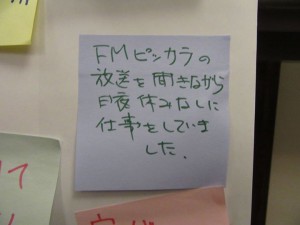 FMピンカラの
放送を聞きながら
昼夜休みなしに
仕事をしていま
した.